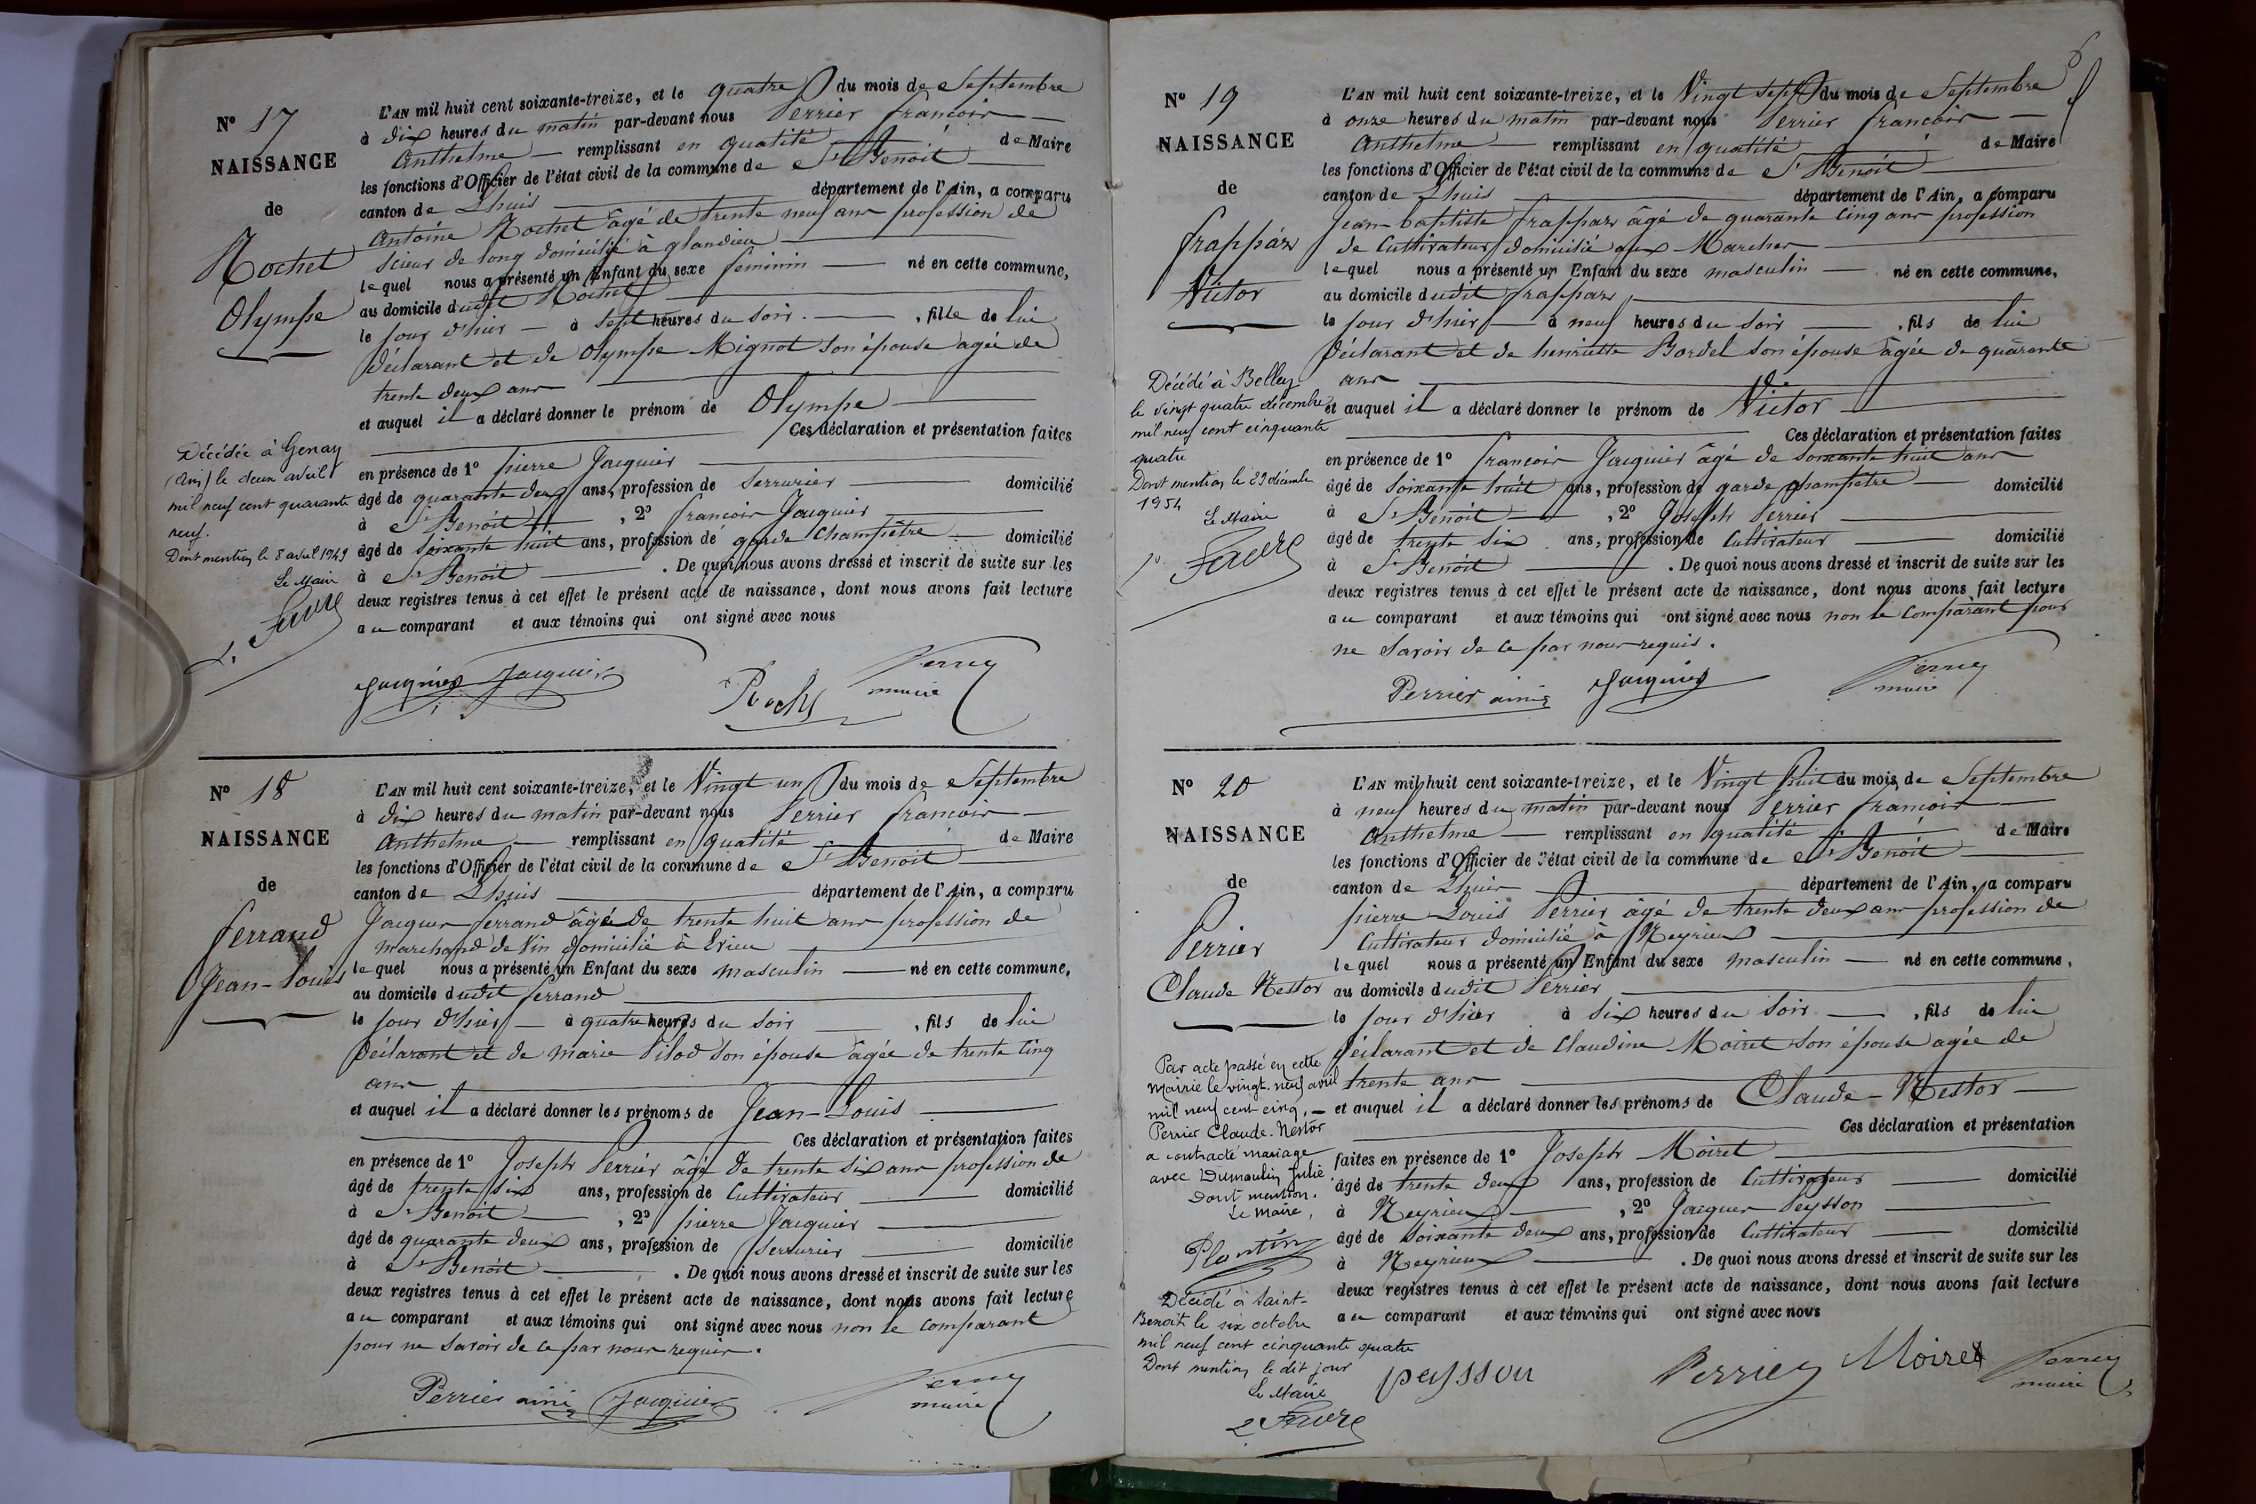 N° 17
NAISSANCE
de
Rochet
Olympe
L'AN mil huit cent soixante-treize, et le quatre du mois de Septembre
à dix heures du matin par-devant nous Perrier francois
Anthelme remplissant en qualité de Maire
les fonctions d'Officier de l'état civil de la commune de St Benoit
canton de Lhuis département de l'Ain, a comparu
Antoine Rochet âgé de trente neuf ans profession de
Scieur de long domicilié à glandieu
lequel nous a présenté un Enfant du sexe feminin né en cette commune,
au domicile dudit Rochet
le jour d'hier à Sept heures du soir , fille de lui
déclarant et de Olympe Mignot son épouse agée de
trente deux ans
et auquel il a déclaré donner le prénom de Olympe
Ces déclaration et présentation faites
en présence de 1° pierre Jacquier
âgé de quarante deux ans, profession de Serrurier domicilié
à St Benoit , 2° francois Jacquier
âgé de soixante huit ans, profession de garde Champêtre domicilié
à St Benoit . De quoi nous avons dressé et inscrit de suite sur les
deux registres tenus à cet effet le présent acte de naissance, dont nous avons fait lecture
au comparant et aux témoins qui ont signé avec nous
Décédée à Genay
(Ain) le deux avril
mil neuf cent quarante
neuf.
Dont mention le 8 avril 1949
Le Maire
L. Favre
Jacquier Jacquier Rochet Perrier
maire
N° 18
NAISSANCE
de
ferrand
Jean-Louis
L'AN mil huit cent soixante-treize, et le Vingt un du mois de Septembre
à dix heures du matin par-devant nous Perrier francois
Anthelme remplissant en qualité de Maire
les fonctions d'Officier de l'état civil de la commune de St Benoit
canton de Lhuis département de l'Ain, a comparu
Jacques ferrand âgé de trente huit ans profession de
marchand de Vin domicilié à Evieu
lequel nous a présenté un Enfant du sexe masculin né en cette commune,
au domicile dudit ferrand
le jour d'hier à quatre heures du soir , fils de lui
déclarant et de marie Pilod son épouse âgée de trente cinq
ans
et auquel il a déclaré donner les prénoms de Jean-Louis
Ces déclaration et présentation faites
en présence de 1° Joseph Perrier âgé de trente six ans profession de
âgé de trente six ans, profession de Cultivateur domicilié
à St Benoit , 2° pierre Jacquier
âgé de quarante deux ans, profession de Serrurier domicilié
à St Benoit . De quoi nous avons dressé et inscrit de suite sur les
deux registres tenus à cet effet le présent acte de naissance, dont nous avons fait lecture
au comparant et aux témoins qui ont signé avec nous non le comparant
pour ne savoir de ce par nous requis.
Perrier ainé Jacquier Perrier
maire
6
N° 19
NAISSANCE
de
frappaz
Victor
L'AN mil huit cent soixante-treize, et le Vingt sept du mois de Septembre
à onze heures du matin par-devant nous Perrier francois
Anthelme remplissant en qualité de Maire
les fonctions d'Officier de l'état civil de la commune de St Benoit
canton de Lhuis département de l'Ain, a comparu
Jean-baptiste frappaz âgé de quarante cinq ans profession
de Cultivateur domicilié aux Marches
lequel nous a présenté un Enfant du sexe masculin né en cette commune,
au domicile dudit frappaz
le jour d'hier à neuf heures du soir , fils de lui
déclarant et de henriette Bordel son épouse âgée de quarante
ans
et auquel il a déclaré donner le prénom de Victor
Ces déclaration et présentation faites
en présence de 1° francois Jacquier âgé de soixante huit ans
âgé de soixante huit ans, profession de garde champêtre domicilié
à St Benoit , 2° Joseph Perrier
âgé de trente six ans, profession de Cultivateur domicilié
à St Benoit . De quoi nous avons dressé et inscrit de suite sur les
deux registres tenus à cet effet le présent acte de naissance, dont nous avons fait lecture
au comparant et aux témoins qui ont signé avec nous non le comparant pour
ne savoir de ce par nous requis.
Décédé à Belley
le vingt quatre décembre
mil neuf cent cinquante
quatre
Dont mention le 29 décembre
1954
Le Maire
Favre
Perrier ainé Jacquier Perrier
maire
N° 20
NAISSANCE
de
Perrier
Claude Nestor
L'AN mil huit cent soixante-treize, et le Vingt huit du mois de Septembre
à neuf heures du matin par-devant nous Perrier francois
Anthelme remplissant en qualité de Maire
les fonctions d'Officier de l'état civil de la commune de St Benoit
canton de Lhuis département de l'Ain, a comparu
pierre Louis Perrier âgé de trente deux ans profession de
Cultivateur domicilié à Neyrieu
lequel nous a présenté un Enfant du sexe masculin né en cette commune,
au domicile dudit Perrier
le jour d'hier à six heures du soir , fils de lui
déclarant et de Claudine Moiret son épouse agée de
trente ans
et auquel il a déclaré donner les prénoms de Claude-Nestor
Ces déclaration et présentation
faites en présence de 1° Joseph Moiret
âgé de trente deux ans, profession de Cultivateur domicilié
à Neyrieu , 2° Jacques Peysson
âgé de soixante deux ans, profession de Cultivateur domicilié
à Neyrieu . De quoi nous avons dressé et inscrit de suite sur les
deux registres tenus à cet effet le présent acte de naissance, dont nous avons fait lecture
au comparant et aux témoins qui ont signé avec nous
Par acte passé en cette
Mairie le vingt-neuf avril
mil neuf cent cinq,
Perrier Claude-Nestor
a contracté mariage
avec Dumoulin Julie.
Dont mention.
Le Maire,
Plantin
Décédé à Saint-
Benoît le six octobre
mil neuf cent cinquante quatre
Dont mention le dit jour
Le Maire
L Favre
peysson Perrier Moiret Perrier
maire